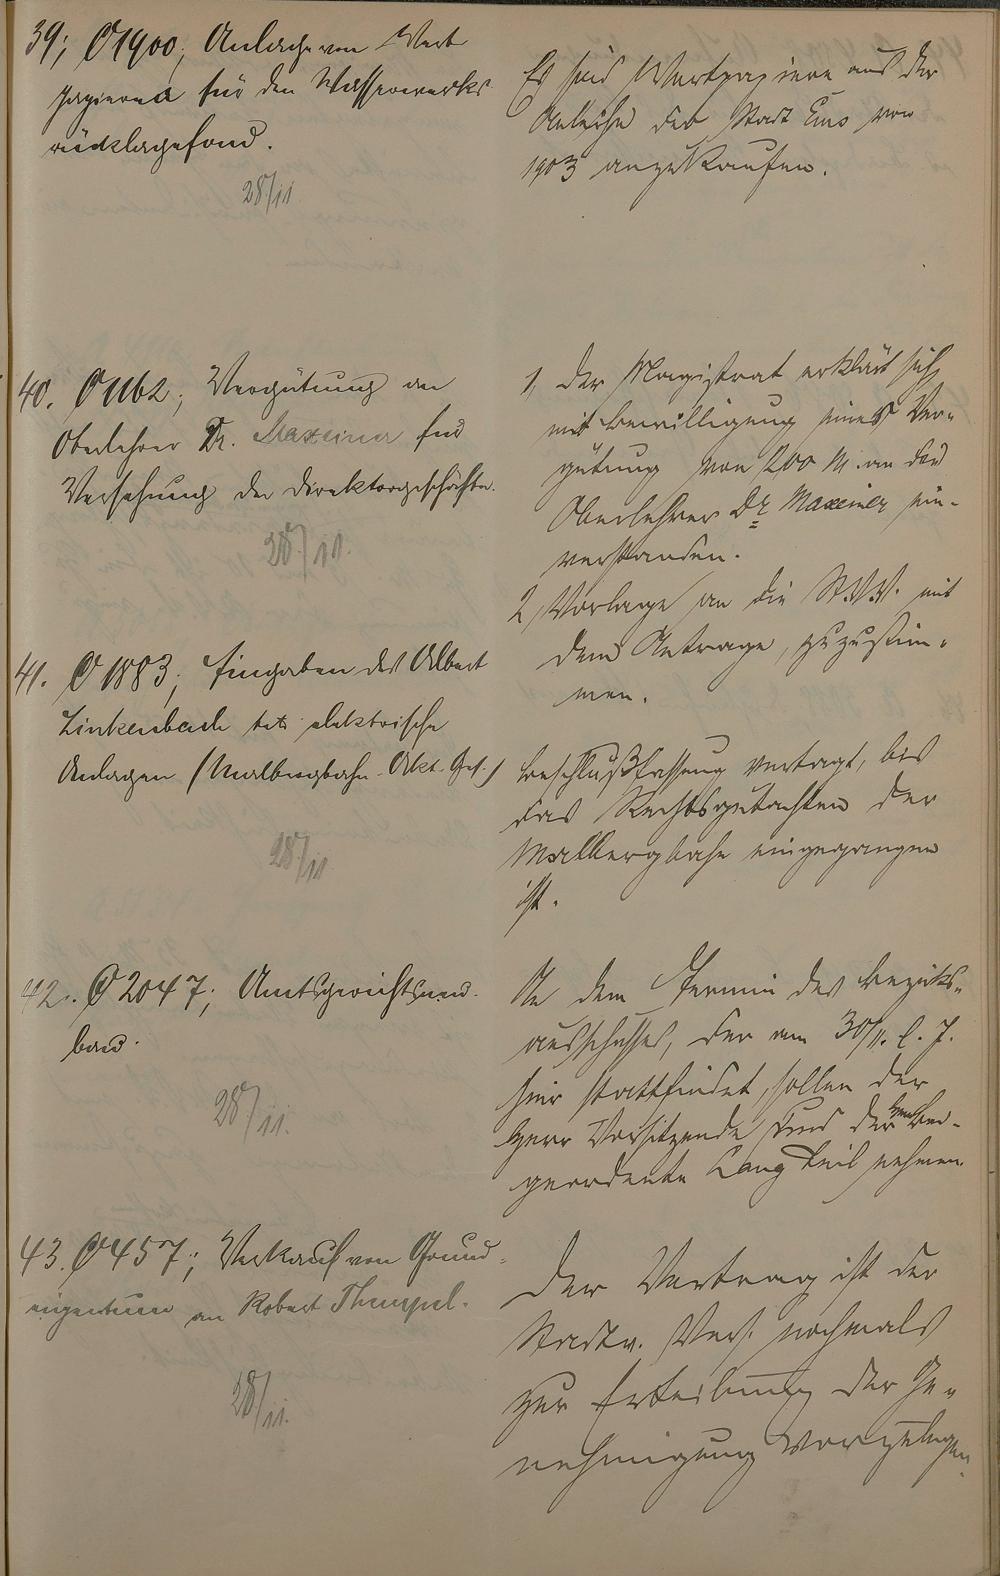 39; C 1900; Anlage von Wert
papieren für den Wasserwerks
rücklagefond.
28/11
Es sind Wertpapiere aus der
Anleihe der Stadt Ems von
1903 anzukaufen.
40. C 1162; Vergütung an
Oberlehrer Dr. Maxeiner für
Versehung der Direktorgeschäfte.
28/11.
1, Der Magistrat erklärt sich
mit Bewilligung einer Ver-
gütung von 200 M. an den
Oberlehrer Dr. Maxeiner ein-
verstanden.
2, Vorlage an die St.V.V. mit
dem Antrage, zuzustim-
men.
41. C 1883; Eingaben des Albert
Linkenbach betr. elektrische
Anlagen (Malbergbahn-Akt. Ges.)
28/11
Beschlußfassung vertagt, bis
das Rechtsgutachten der
Malbergbahn eingegangen
ist.
42. C 2047; Amtsgerichtsneu-
bau.
28/11.
An dem Termin des Bezirks-
ausschusses, der am 30/11. l. J.
hier stattfindet, sollen der
Herr Vorsitzende und der Herr Bei-
geordnete Lang teil nehmen.
43. C 457; Verkauf von Grund-
eigentum an Robert Thempel.
28/11.
Der Vertrag ist der
Stadtv. Vers. nochmals
zur Erteilung der Ge-
nehmigung vorzulegen.